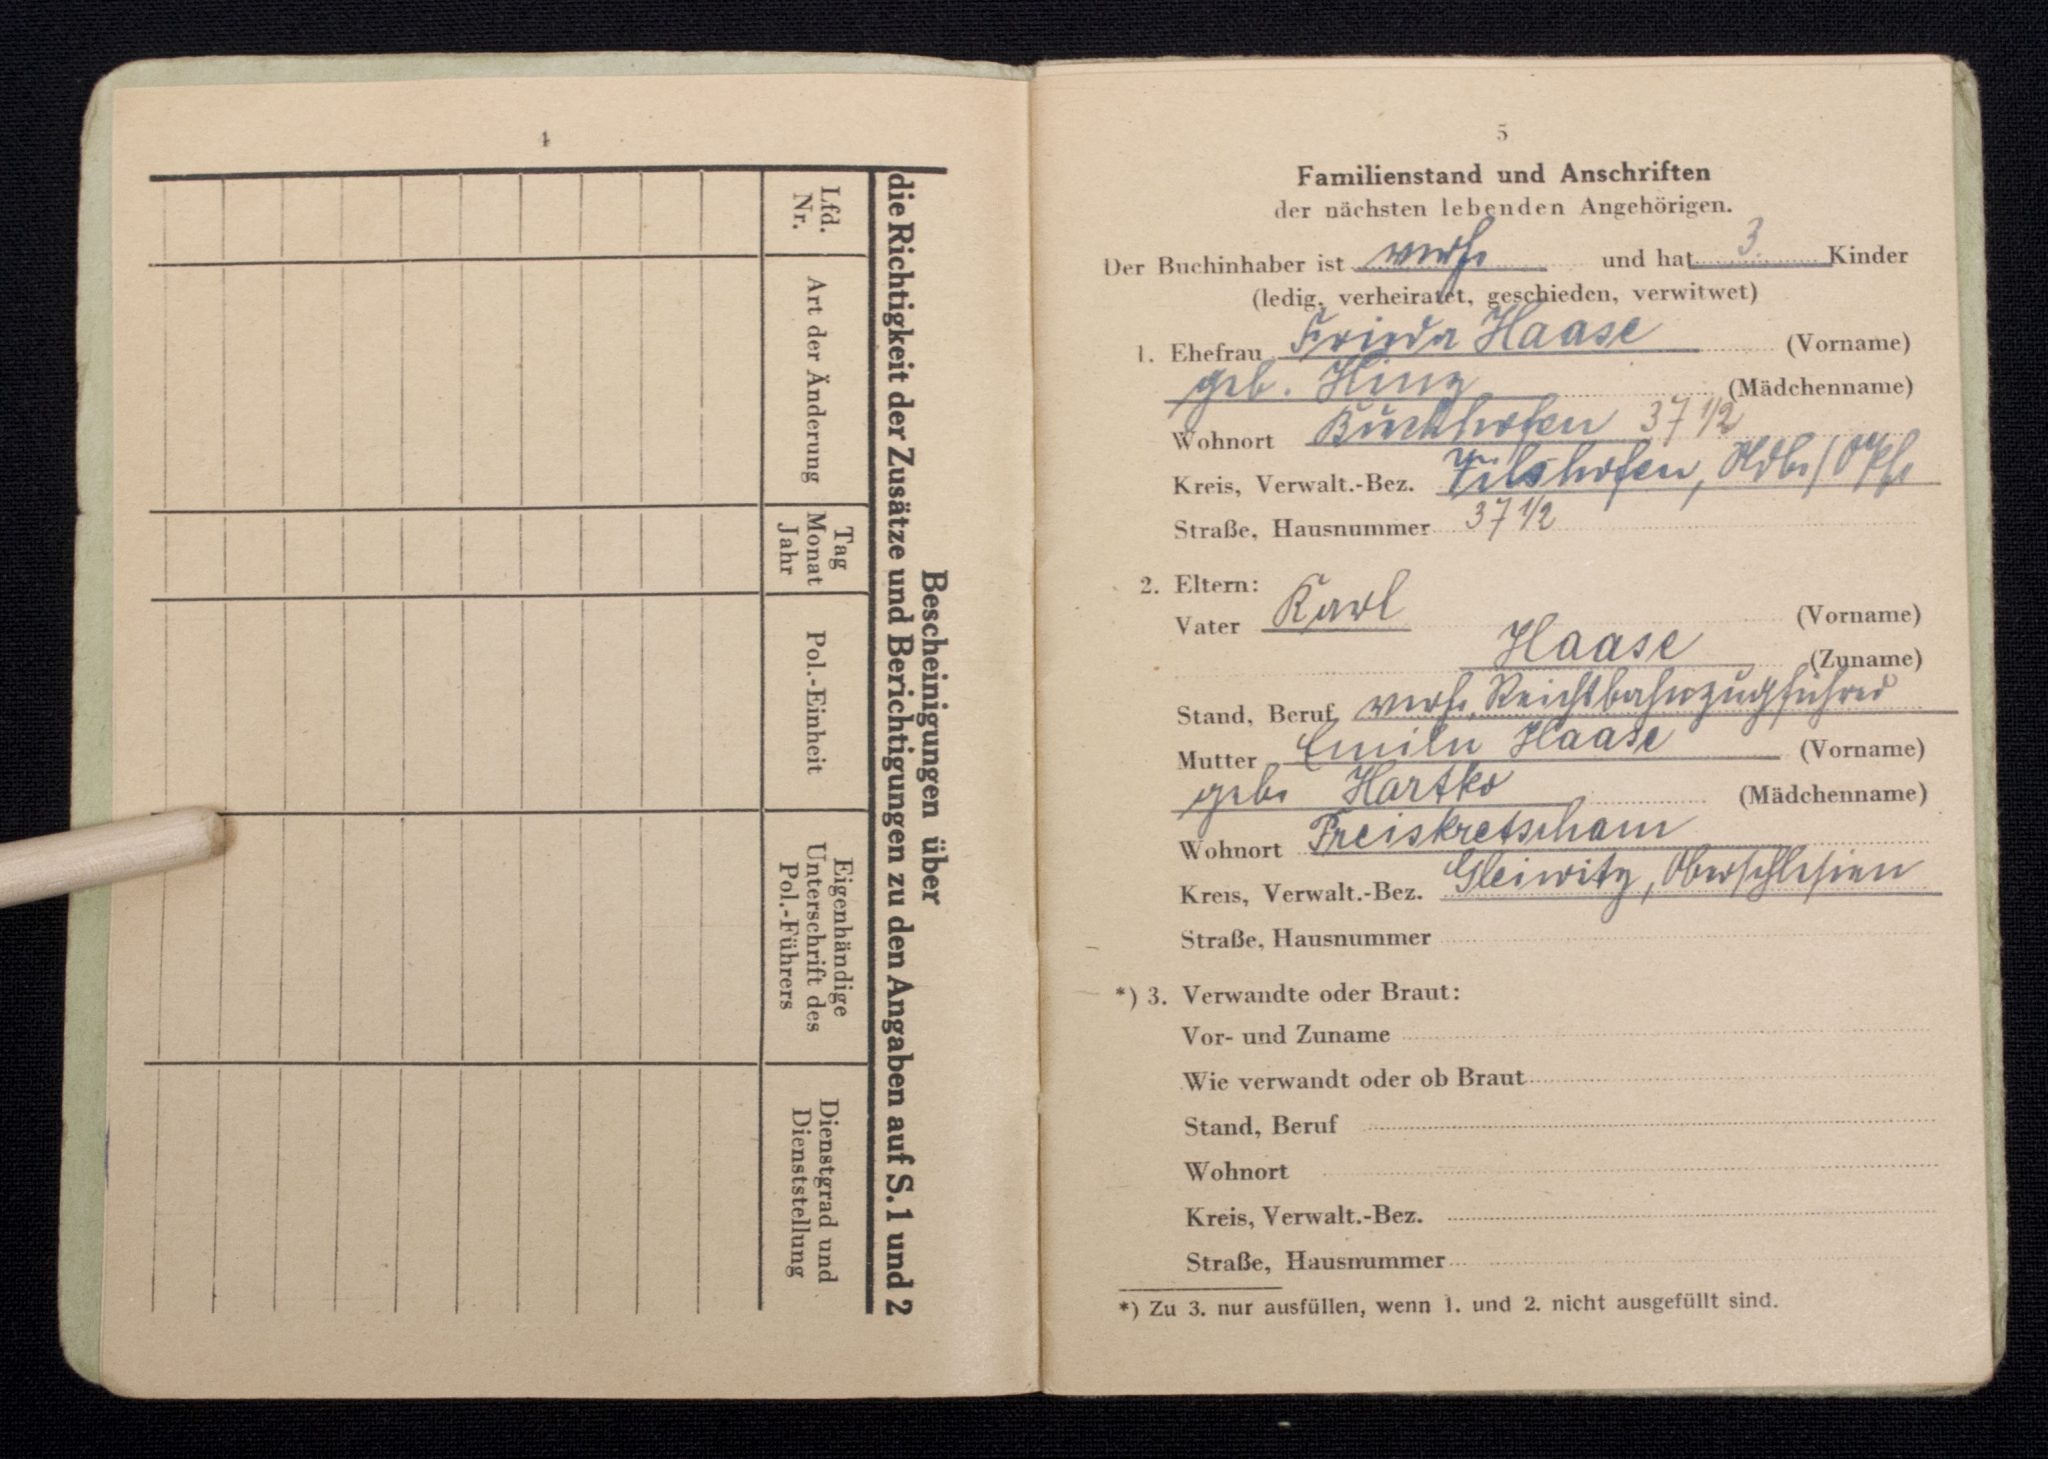 4
Bescheinigungen über
die Richtigkeit der Zusätze und Berichtigungen zu den Angaben auf S. 1 und 2
Lfd.
Nr.
Art der Änderung
Tag
Monat
Jahr
Pol.-Einheit
Eigenhändige
Unterschrift des
Pol.-Führers
Dienstgrad und
Dienststellung
5
Familienstand und Anschriften
der nächsten lebenden Angehörigen.
Der Buchinhaber ist verh. und hat 3 Kinder
(ledig, verheiratet, geschieden, verwitwet)
1. Ehefrau Frieda Haase (Vorname)
geb. Hinz (Mädchenname)
Wohnort Künzing 37 1/2
Kreis, Verwalt.-Bez. Vilshofen, Ndb./OPf.
Straße, Hausnummer 37 1/2
2. Eltern:
Vater Karl (Vorname)
Haase (Zuname)
Stand, Beruf verh. Reichsbahnzugführer
Mutter Emilie Haase (Vorname)
geb. Hartko (Mädchenname)
Wohnort Preiskretscham
Kreis, Verwalt.-Bez. Gleiwitz, Oberschlesien
Straße, Hausnummer
*) 3. Verwandte oder Braut:
Vor- und Zuname
Wie verwandt oder ob Braut
Stand, Beruf
Wohnort
Kreis, Verwalt.-Bez.
Straße, Hausnummer
*) Zu 3. nur ausfüllen, wenn 1. und 2. nicht ausgefüllt sind.